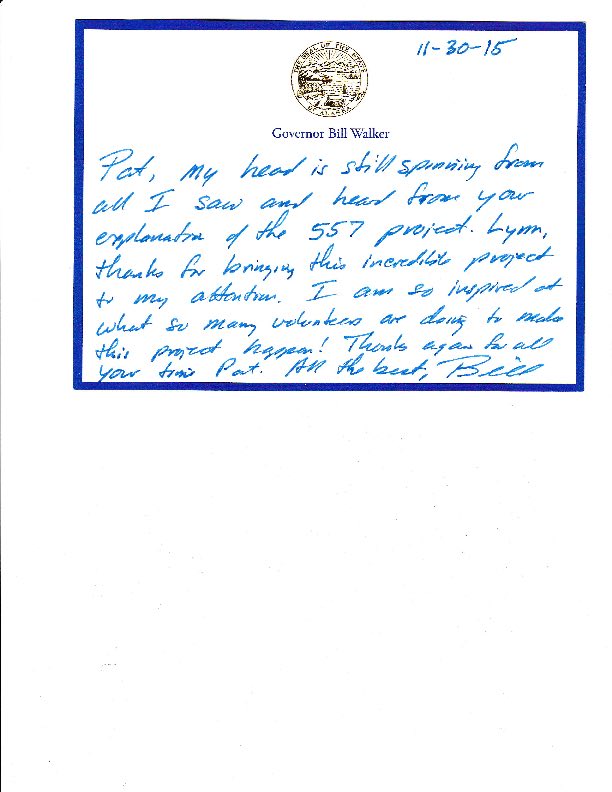 11-30-15
THE SEAL OF THE STATE OF ALASKA
Governor Bill Walker
Pat, My head is still spinning from
all I saw and heard from your
explanation of the 557 project. Lynn,
thanks for bringing this incredible project
to my attention. I am so inspired at
what so many volunteers are doing to make
this project happen! Thanks again for all
your time Pat. All the best, Bill